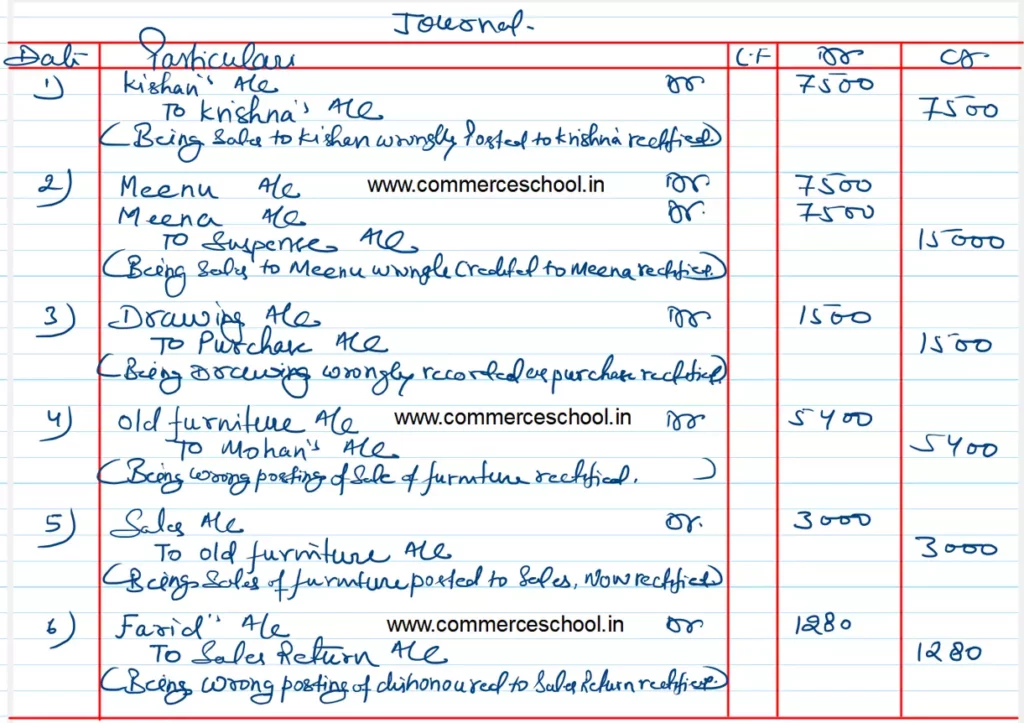 Journal.
Date Particulars L.F Dr Cr
1) Kishan's A/c Dr 7500
To Krishna's A/c 7500
(Being Sales to Kishan wrongly Posted to Krishna rectified)
2) Meenu A/c www.commerceschool.in Dr 7500
Meena A/c Dr. 7500
To Suspense A/c 15000
(Being Sales to Meenu wrongle Credited to Meena rectified)
3) Drawing A/c Dr 1500
To Purchase A/c 1500
(Being Drawing wrongly recorded as purchase rectified)
4) old furniture A/c www.commerceschool.in Dr 5400
To Mohan's A/c 5400
(Being wrong posting of Sale of furniture rectified. )
5) Sales A/c Dr. 3000
To old furniture A/c 3000
(Being Sales of furniture posted to Sales, Now rectified)
6) Farid's A/c www.commerceschool.in Dr 1280
To Sales Return A/c 1280
(Being wrong posting of dishonoured to Sales Return rectified)